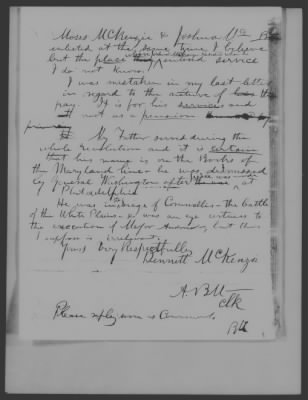 Moses McKenzie & Joshua McK
enlisted at the same time I believe
but the place and service
I do not know.
I was mistaken in my last letter
in regard to the nature of the
pay. It is for his services and
it is not a pension by
My Father served during the
whole Revolution and it is certain
that his name is on the Books of
the Maryland line - he was dismissed
by General Washington after at
Philadelphia
He was in the Siege of Cornwallis - the battle
of the White Plains - or was an eye witness to
the execution of Major Andre, but this
I suppose is irrelevant.
Yours Very Respectfully
Bennett McKenzie
Clk
Please reply soon